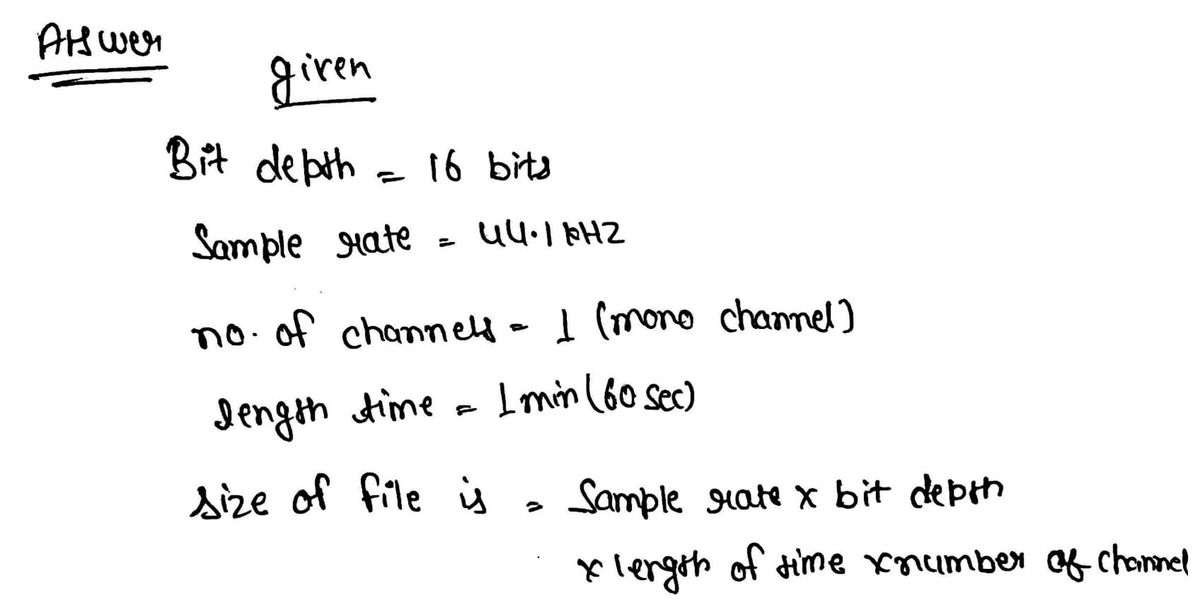 Answer
given
Bit depth = 16 bits
Sample rate = 44.1 kHz
no. of channels = 1 (mono channel)
length time = 1 min (60 sec)
size of file is = Sample rate x bit depth
x length of time x number of channel